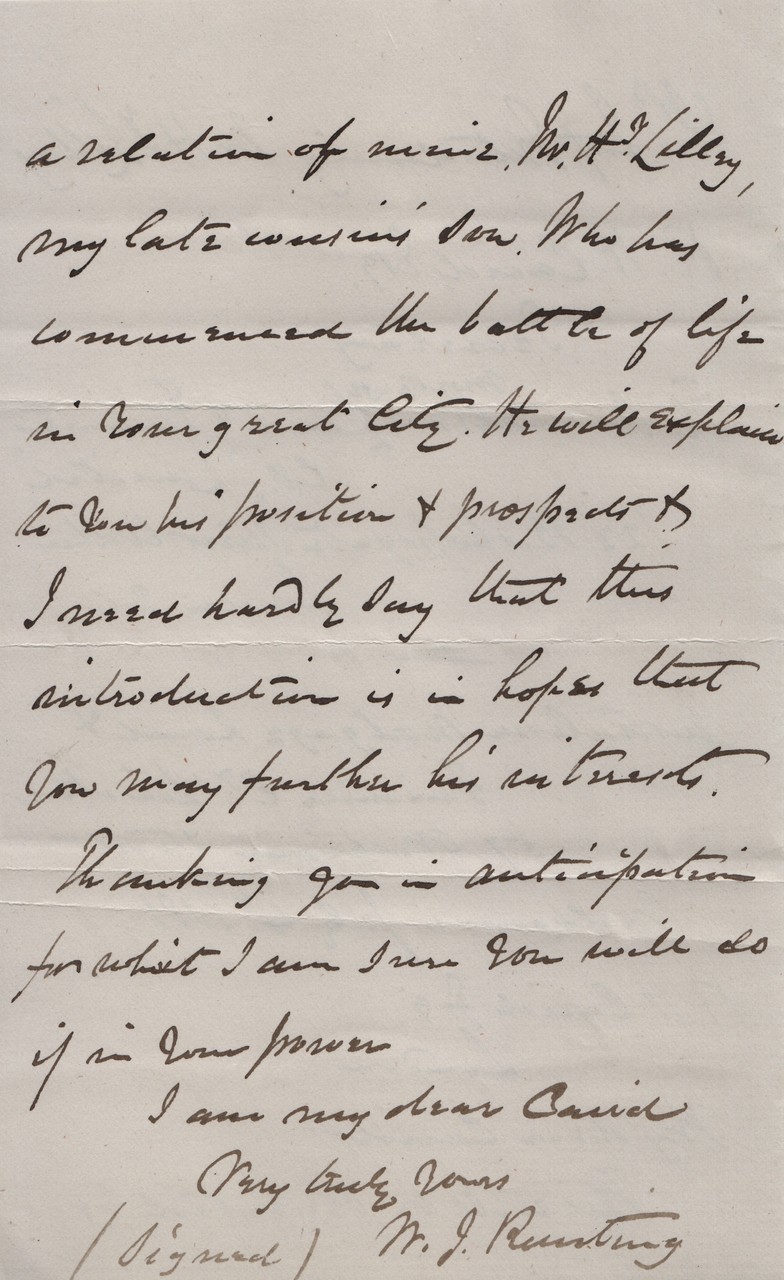 a relation of mine, Mr. Hy. Lilley,
my late cousin's son. Who has
commenced the battle of life
in Your great City. He will Explain
to You his position & prospects &
I need hardly say that this
introduction is in hopes that
You may further his interests.
Thanking you in anticipation
for what I am sure You will do
if in Your power
I am my dear
Very truly Yours
(Signed) W. J.